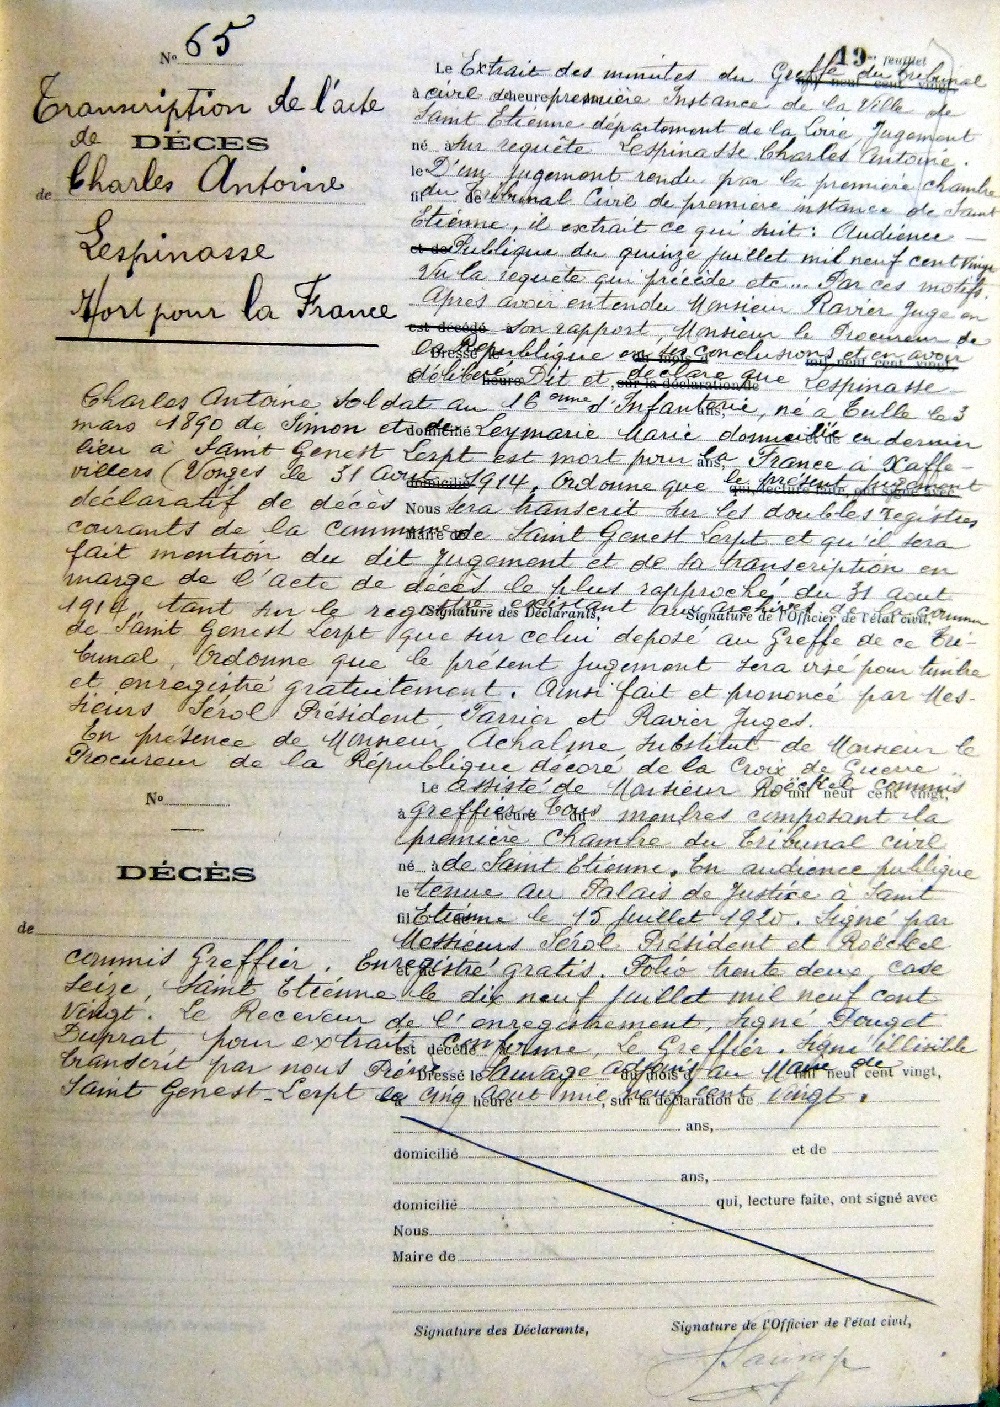 19e feuillet
No 65
Transcription de l'acte
de DÉCÈS
de Charles Antoine
Lespinasse
Mort pour la France
Le Extrait des minutes du Greffe du tribunal
à civil de heure première Instance de la Ville de
Saint Etienne département de la Loire Jugement
né à sur requête Lespinasse Charles Antoine.
le D'un jugement rendu par la première chambre
fil de du Tribunal Civil de première instance de Saint
Etienne, il extrait ce qui suit : Audience —
et de Publique du quinze juillet mil neuf cent vingt
Vu la requête qui précède etc... Par ces motifs.
Après avoir entendu Monsieur Ravier Juge en
est décédé à son rapport, Monsieur le Procureur de
la République en ses conclusions et en avoir
délibéré Dit et déclare que Lespinasse —
Charles Antoine Soldat au 16 ème d'Infanterie, né à Tulle le 3
mars 1890 de Simon et de Leymarie Marie domicilié en dernier
lieu à Saint Genest Lerpt est mort pour la France à Xaffe-
villers (Vosges le 31 Aout 1914. Ordonne que le présent jugement
déclaratif de décès Nous sera transcrit sur les doubles registres
courants de la commune de Saint Genest Lerpt et qu'il sera
fait mention du dit Jugement et de sa transcription en
marge de l'acte de décès le plus rapproché du 31 aout
1914, tant sur le registre existant aux archives de la commun
Signature des Déclarants, Signature de l'Officier de l'état civil,
de Saint Genest Lerpt que sur celui déposé au Greffe de ce Tri-
bunal, Ordonne que le présent jugement sera visé pour timbre
et enregistré gratuitement. Ainsi fait et prononcé par Mes-
sieurs Sérol Président, Tarrier et Ravier Juges.
En présence de Monsieur Achalme substitut de Monsieur le
Procureur de la République décoré de la Croix de Guerre
Le assisté de Monsieur Roëckel commis
mil neuf cent vingt,
No
à greffier heure Tous du membres composant la
première chambre du Tribunal civil
DÉCÈS
né à de Saint Etienne. En audience publique
le tenue au Palais de Justice à Saint
fil Etienne le 15 juillet 1920. Signé par
de
Messieurs Sérol Président et Roëckel
commis Greffier. Enregistré gratis. Folio trente deux, case
seize, Saint Etienne le dix neuf juillet mil neuf cent
vingt. Le Receveur de l'enregistrement, signé Pouget
Duprat, pour extrait conforme, Le Greffier. Signé illisible
est décédé
transcrit par nous Pierre Sauvage adjoint au Maire de
Dressé le du mois d mil neuf cent vingt,
Saint Genest-Lerpt le cinq aout mil neuf cent vingt.
à heure , sur la déclaration de
ans,
domicilié et de
ans,
domicilié qui, lecture faite, ont signé avec
Nous
Maire de
Signature des Déclarants, Signature de l'Officier de l'état civil,
Sauvage